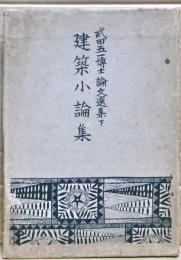 武田五一博士論文選集下
建築小論集